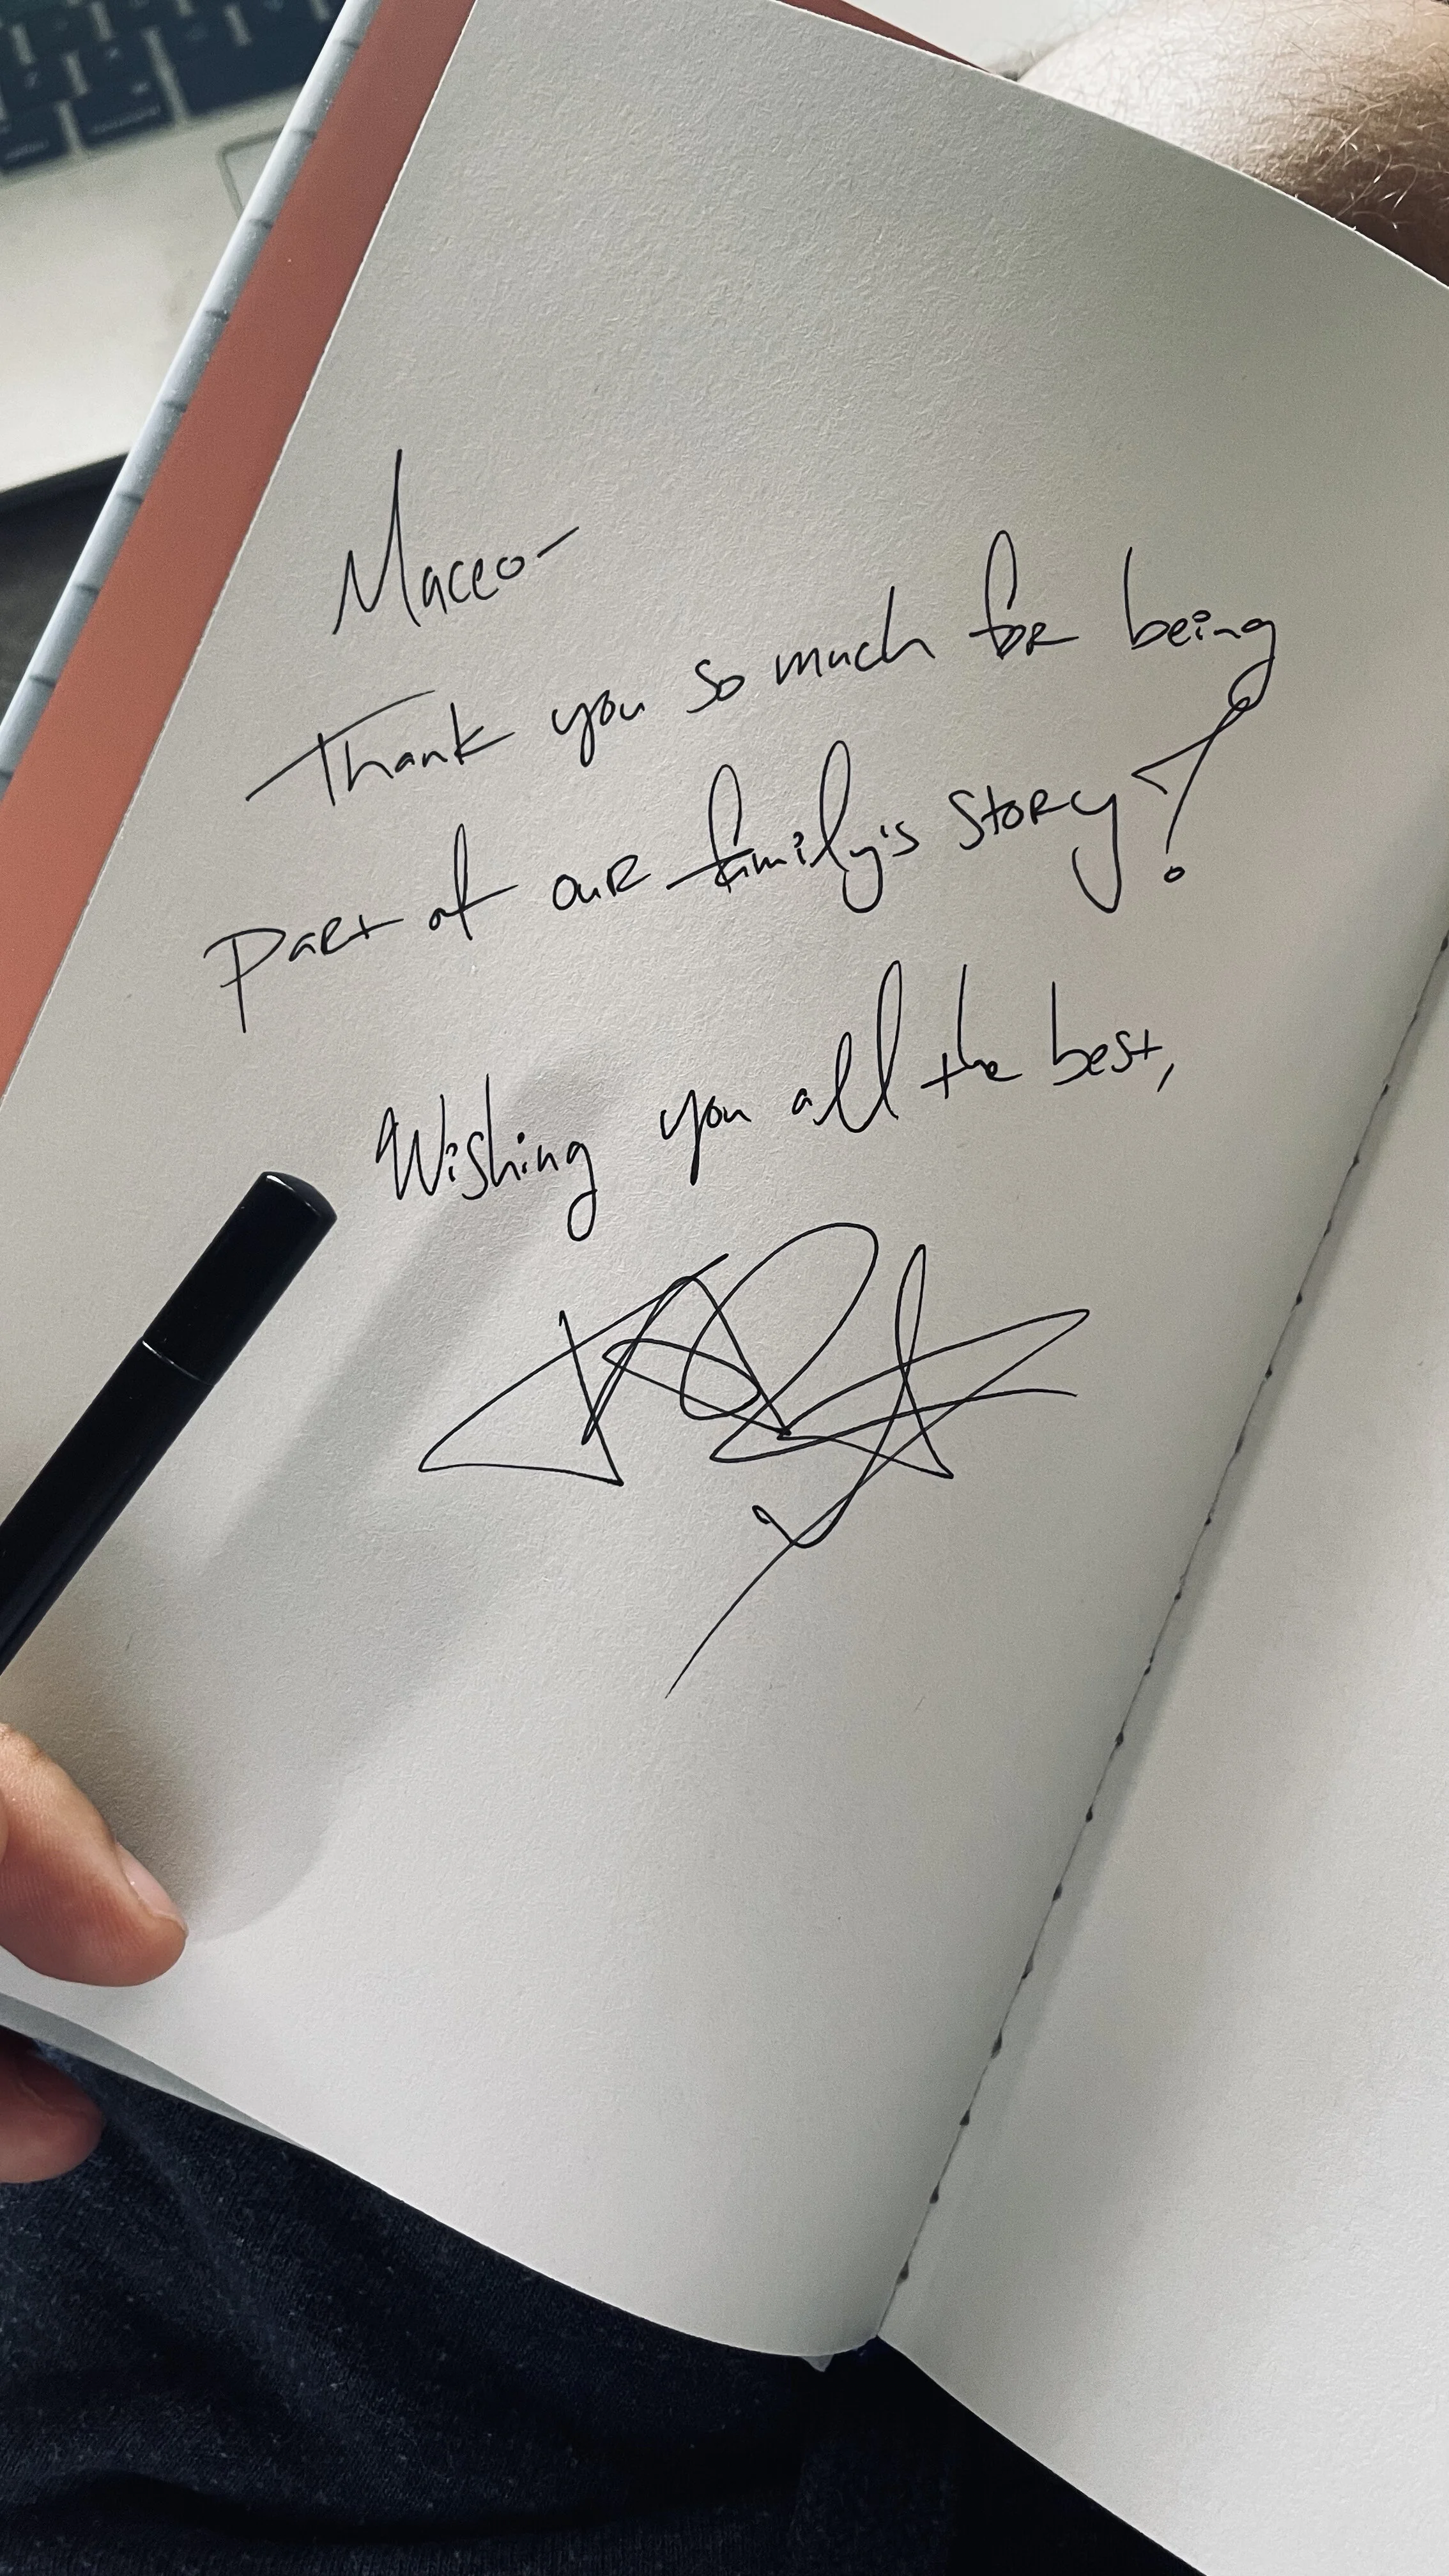 Maceo-
Thank you so much for being
part of our family's story!
Wishing you all the best,